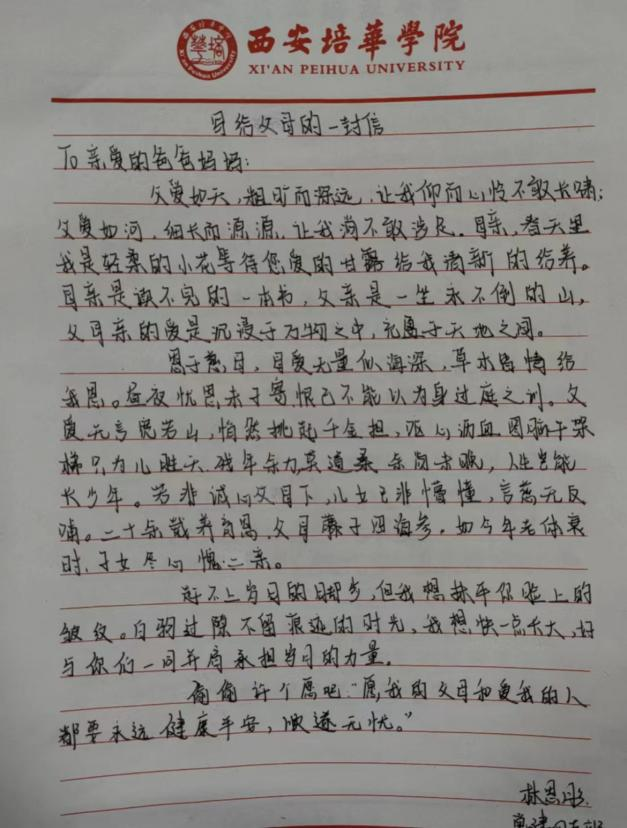 西安培華學院
XI'AN PEIHUA UNIVERSITY
写给父母的一封信
To 亲爱的爸爸妈妈:
父爱如天,粗旷而深远,让我仰而心怜不敢长啸;
父爱如河,细长而源源,让我淌不敢涉足。母亲,春天里
我是轻柔的小花等待您爱的甘露给我清新的给养。
母亲是读不完的一本书,父亲是一生永不倒的山,
父母亲的爱是沉浸于万物之中,充盈于天地之间。
恩于慈母,母爱无量似海深,草木皆情给
我恩。昼夜忧思未子寄恨己不能以为身过庭之训。父
爱无言宽若山,怡然挑起千金担,沥血
只为儿胜天 残年余力 人生岂能
长少年。若非诚心父母下,儿女已非懵懂,言慈无反
哺。二十余载养育恩,父母 于四海参,如今年老体衰
时,子女尽心愧二亲。
赶不上岁月的脚步,但我想抹平你脸上的
皱纹。白驹过隙不留痕迹的时光,我想快一点长大,好
与你们一同并肩承担岁月的力量。
偷偷许个愿吧“愿我的父母和爱我的人
都要永远健康平安,顺遂无忧。”
林恩彤